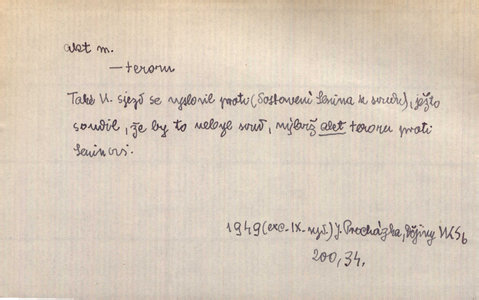 akt m.
— teroru
Také V. sjezd se vyslovil proti (dostavení Lenina k soudu), ježto
soudil, že by to nebyl soud, nýbrž akt teroru proti
Leninovi.
1949 (exc. IX. vyd.) J. Procházka, Dějiny VKSb
200, 34.